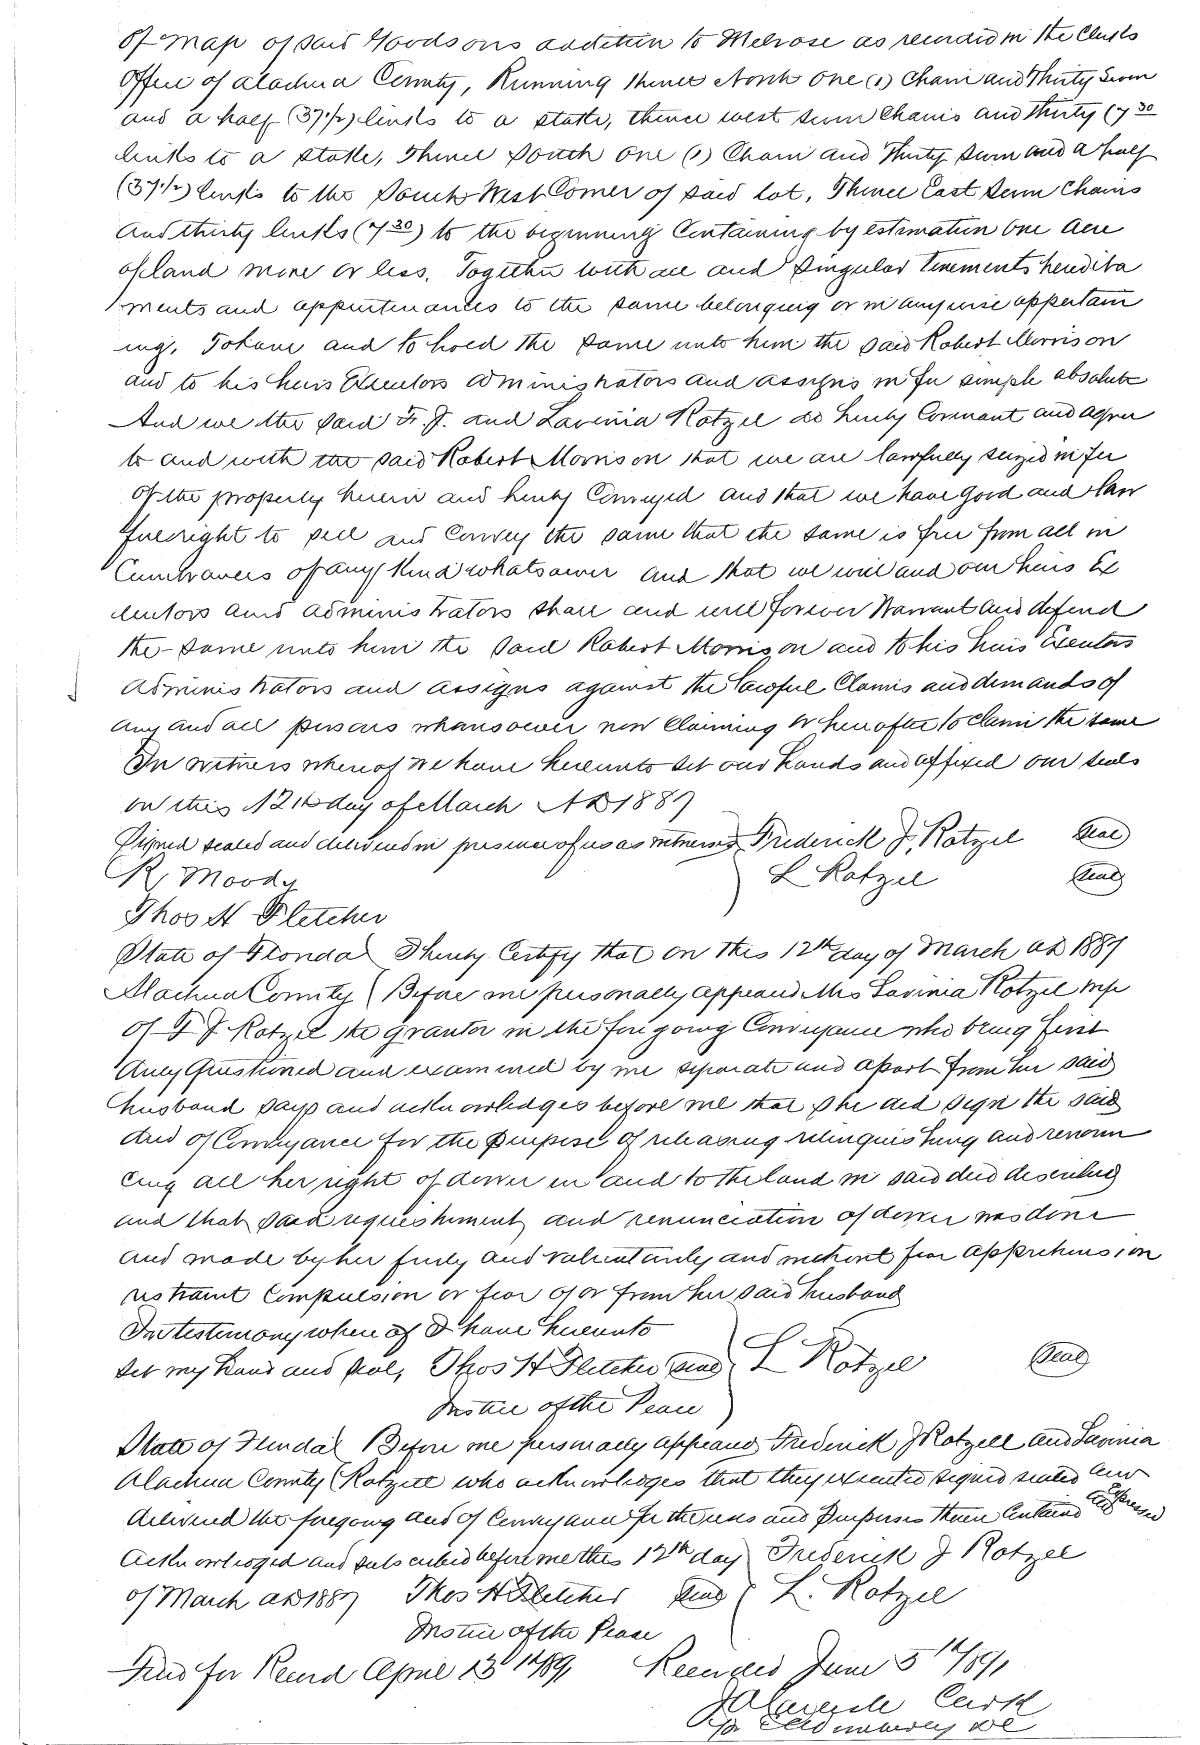 of map of said Goodsons addition to Melrose as recorded in the Clerks
Office of Alachua County, Running thence North one (1) Chain and Thirty Seven
and a half (37½) links to a stake, thence west seven Chains and thirty (7 30
links to a stake, Thence South One (1) Chain and Thirty Seven and a half
(37½) links to the South West Corner of said lot, Thence East Seven Chains
And thirty links (7 30) to the beginning Containing by estimation one Acre
of land more or less. Together with all and Singular Tenements heredita
ments and appurtenances to the same belonging or in anywise appertain
ing, To have and to hold the same unto him the said Robert Morrison
and to his heirs Executors administrators and assigns in fee simple absolute
And we the said F. J. and Lavinia Rotzel do hereby Covenant and agree
to and with the said Robert Morrison that we are lawfully seized in fee
of the property herein and hereby Conveyed and that we have good and law
ful right to sell and Convey the same that the same is free from all in
Cumbrances of any Kind whatsoever and that we will and our heirs Ex
ecutors and administrators shall and will forever Warrant and defend
the same unto him the said Robert Morrison and to his heirs Executors
Administrators and assigns against the lawful Claims and demands of
any and all persons whomsoever now Claiming or hereafter to claim the same
In witness whereof we have hereunto set our hands and affixed our seals
on this 12th day of March AD 1887
Signed sealed and delivered in presence of us as witnesses Frederick J. Rotzel Seal
R, Moody L Rotzel Seal
Thos H Fletcher
State of Florida I hereby Certify that on this 12th day of March AD 1887
Alachua County Before me personally appeared Mrs Lavinia Rotzel wife
of F J Rotzel the grantor in the foregoing Conveyance who being first
duly questioned and examined by me separate and apart from her said
husband says and acknowledges before me that she did sign the said
deed of Conveyance for the purpose of releasing relinquishing and renoun
cing all her right of dower in and to the land in said deed described
and that said and renunciation of dower was done
and made by her freely and voluntarily and without fear apprehension
restraint Compulsion or fear of or from her said husband
In testimony where of I have hereunto
set my hand and seal, Thos H Fletcher Seal L Rotzel Seal
Justice of the Peace
State of Florida Before me personally appeared Frederick J Rotzell and Lavinia
Alachua County Rotzell who acknowledges that they executed signed sealed and
delivered the foregoing deed of Conveyance for the uses and purposes therein Contained and Expressed
Acknowledged and subscribed before me this 12th day Frederick J Rotzel
of March AD 1887 Thos H Fletcher Seal L. Rotzel
Justice of the Peace
Filed for Record April 13th/891 Recorded June 5th/891
Clerk
DC